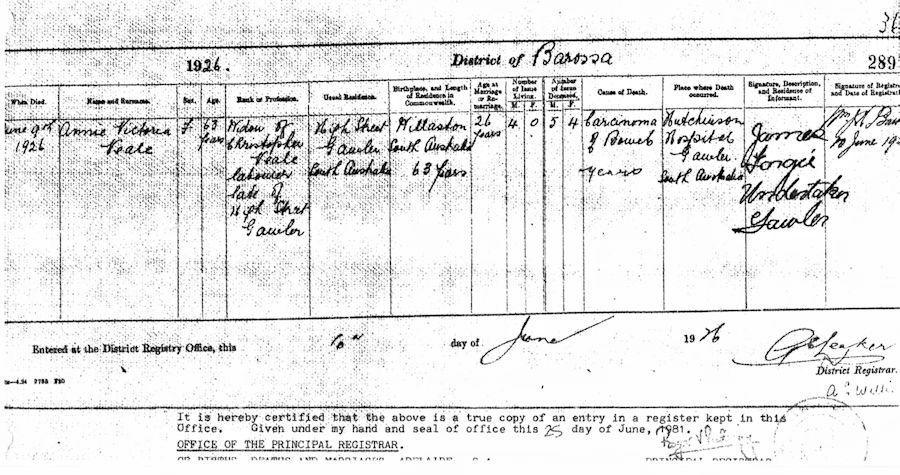 1926. District of Barossa 289
When Died. Name and Surname. Sex. Age. Rank or Profession. Usual Residence. Birthplace, and Length of Residence in Commonwealth. Age at Marriage or Re-marriage. Number of Issue Living. M. F. Number of Issue Deceased. M. F. Cause of Death. Place where Death occurred. Signature, Description, and Residence of Informant. Signature of Registrar and Date of Registration
June 9th 1926
Annie Victoria Veale
F
63 years
Widow of Christopher Veale labourer late of High Street Gawler
High Street Gawler South Australia
Willaston South Australia 63 years
26 years
4 0 5 4
Carcinoma of Bowel years
Hutchinson Hospital Gawler South Australia
James Forgie Undertaker Gawler
10 June 192
Entered at the District Registry Office, this 10th day of June 1926
District Registrar.
It is hereby certified that the above is a true copy of an entry in a register kept in this
Office. Given under my hand and seal of office this 25 day of June, 1981.
OFFICE OF THE PRINCIPAL REGISTRAR.
OF BIRTHS, DEATHS AND MARRIAGES, ADELAIDE, S.A. PRINCIPAL REGISTRAR